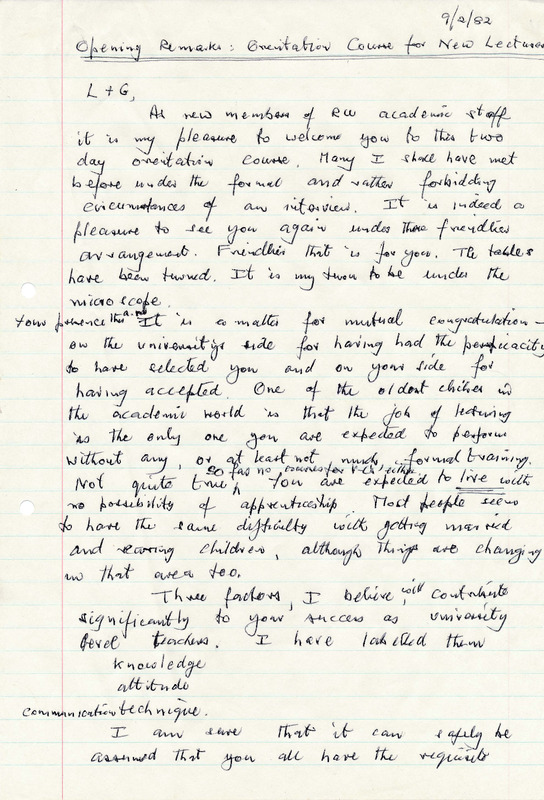 9/2/82
Opening Remarks: Orientation Course for New Lecturers
L + G,
As new members of RU academic staff
it is my pleasure to welcome you to this two
day orientation course. Many I shall have met
before under the formal and rather forbidding
circumstances of an interview. It is indeed a
pleasure to see you again under these friendlier
arrangement. Friendlier that is for you. The tables
have been turned. It is my turn to be under the
microscope.
Your presence this a.m. It is a matter for mutual congratulation –
on the university's side for having had the perspicacity
to have selected you and on your side for
having accepted. One of the oldest clichés in
the academic world is that the job of lecturing
is the only one you are expected to perform
without any, or at least not much, formal training.
so far no courses for V-Cs, either
Not quite true, You are expected to live with
no possibility of apprenticeship. Most people seem
to have the same difficulty with getting married
and rearing children, although things are changing
in that area too.
Three factors, I believe, will contribute
significantly to your success as university
level teachers. I have labelled them
knowledge
attitude
communication technique.
I am sure that it can safely be
assumed that you all have the requisite